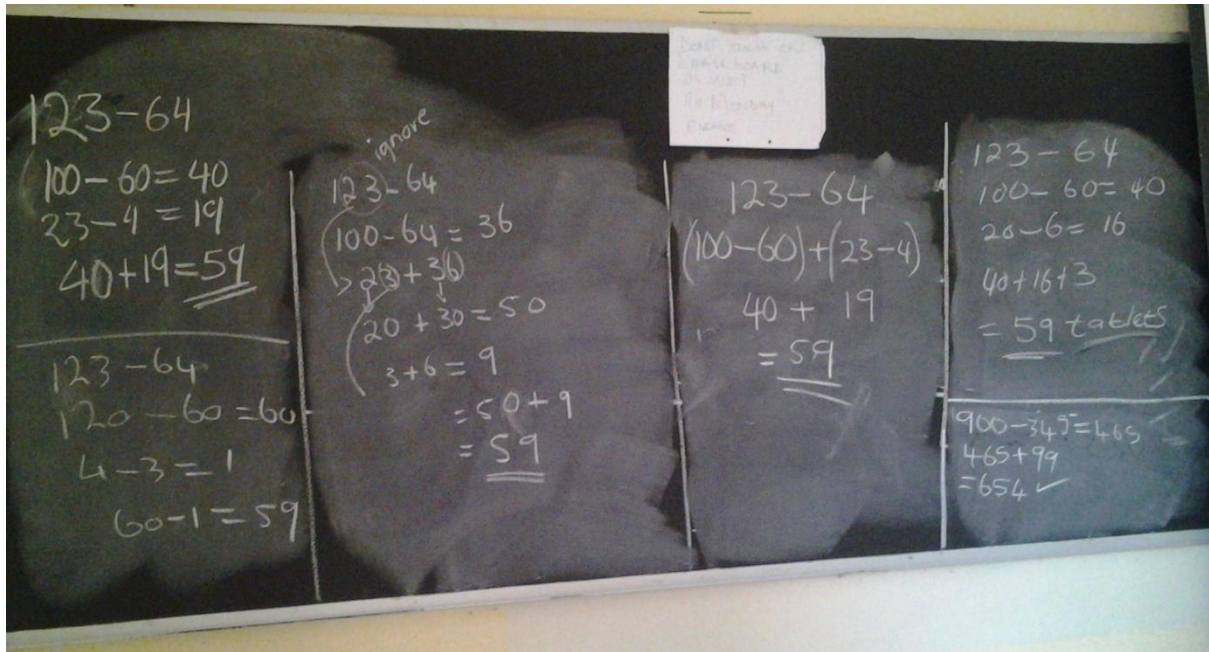 123-64
100-60=40
23-4=19
40+19=59
123-64
120-60=60
4-3=1
60-1=59
ignore
123-64
100-64=36
23+36
20+30=50
3+6=9
=50+9
=59
CHALKBOARD
MONDAY
123-64
(100-60)+(23-4)
40+19
=59
123-64
100-60=40
20-6=16
40+16+3
=59 tablets
900-345=465
465+99
=654 ✓